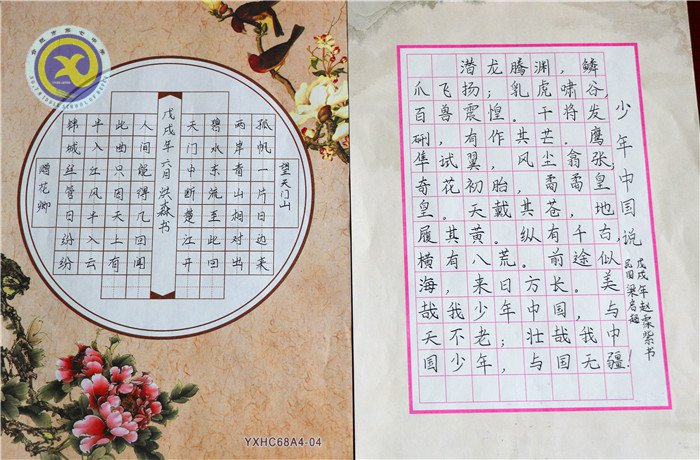 赠花卿
锦城丝管日纷纷
半入江风半入云
此曲只因天上有
人间能得几回闻
戊戌年六月洪森书
天门中断楚江开
碧水东流至此回
两岸青山相对出
孤帆一片日边来
望天门山
YXHC68A4-04
少年中国说
民国 梁启超
戊戌年赵霖紫书
潜龙腾渊，鳞
爪飞扬；乳虎啸谷，
百兽震惶。干将发
硎，有作其芒。鹰
隼试翼，风尘翕张。
奇花初胎，矞矞皇
皇。天戴其苍，地
履其黄。纵有千古，
横有八荒。前途似
海，来日方长。美
哉我少年中国，与
天不老；壮哉我中
国少年，与国无疆！